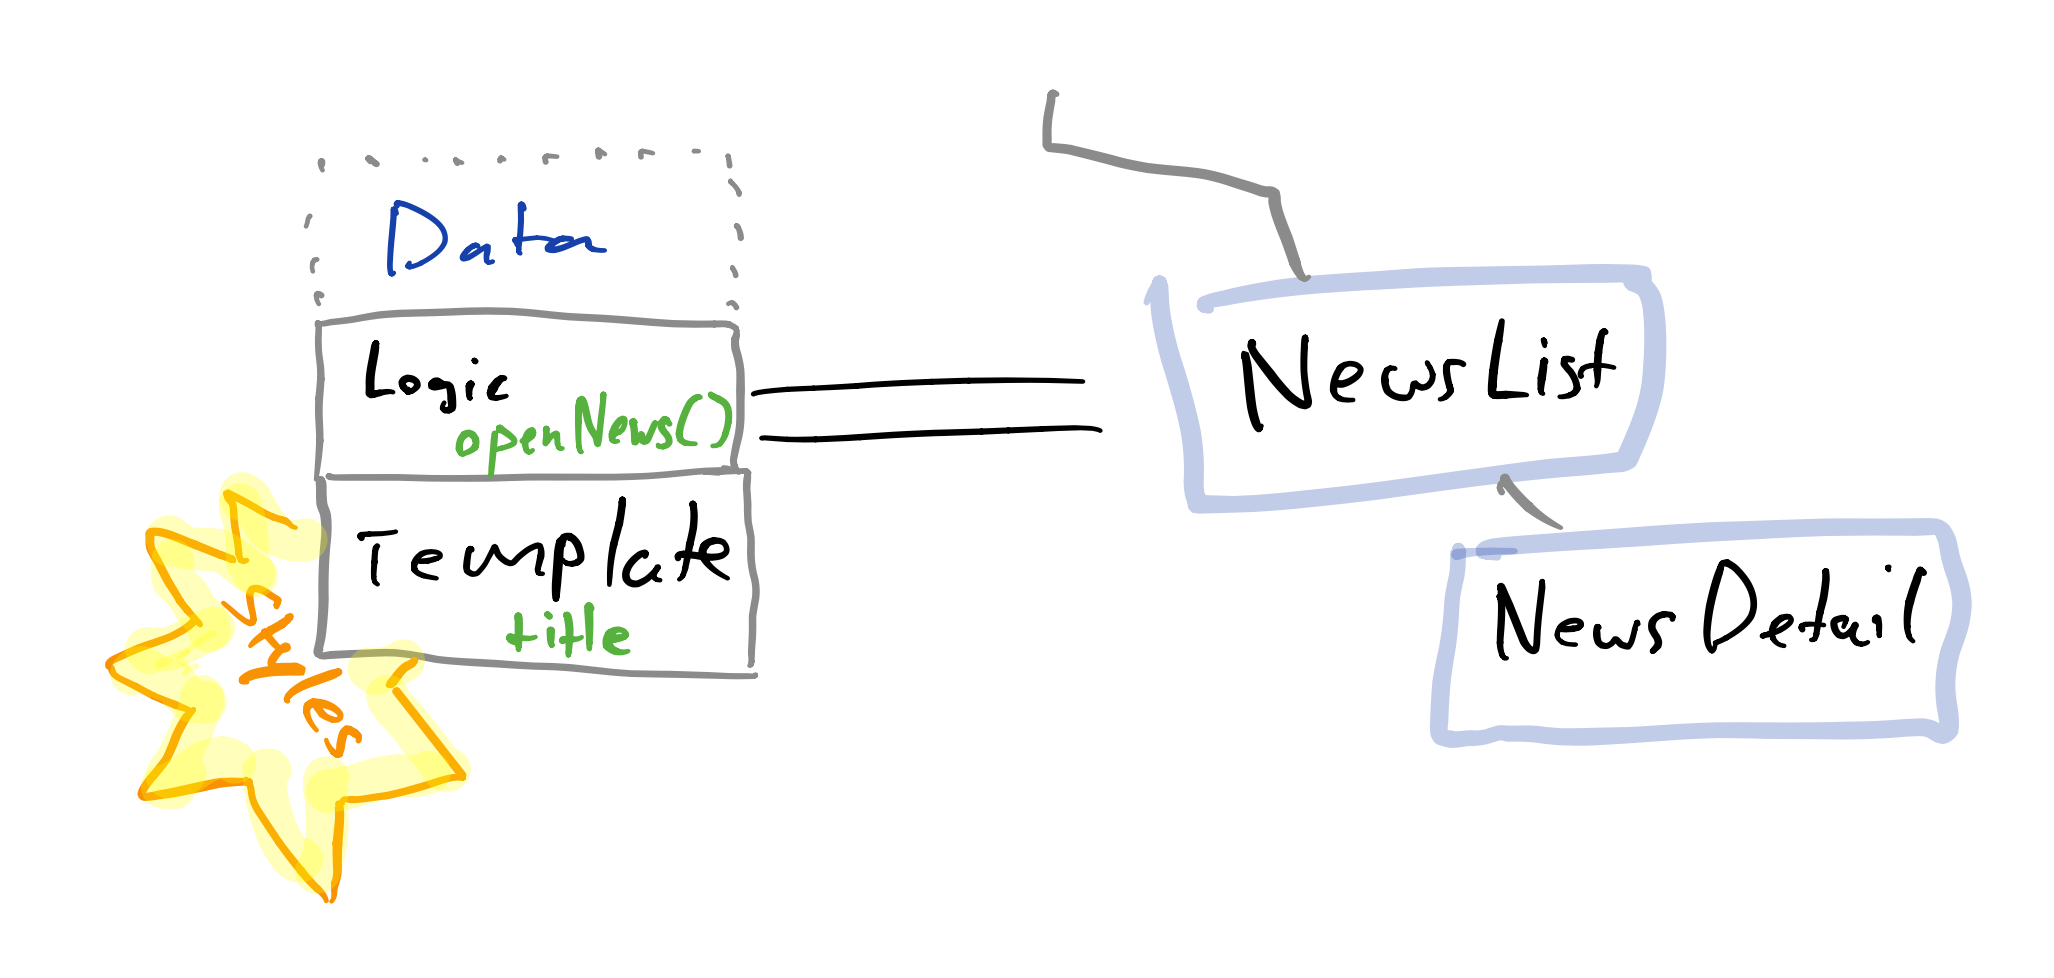 Data
Logic
openNews()
Template
title
Styles
NewsList
NewsDetail